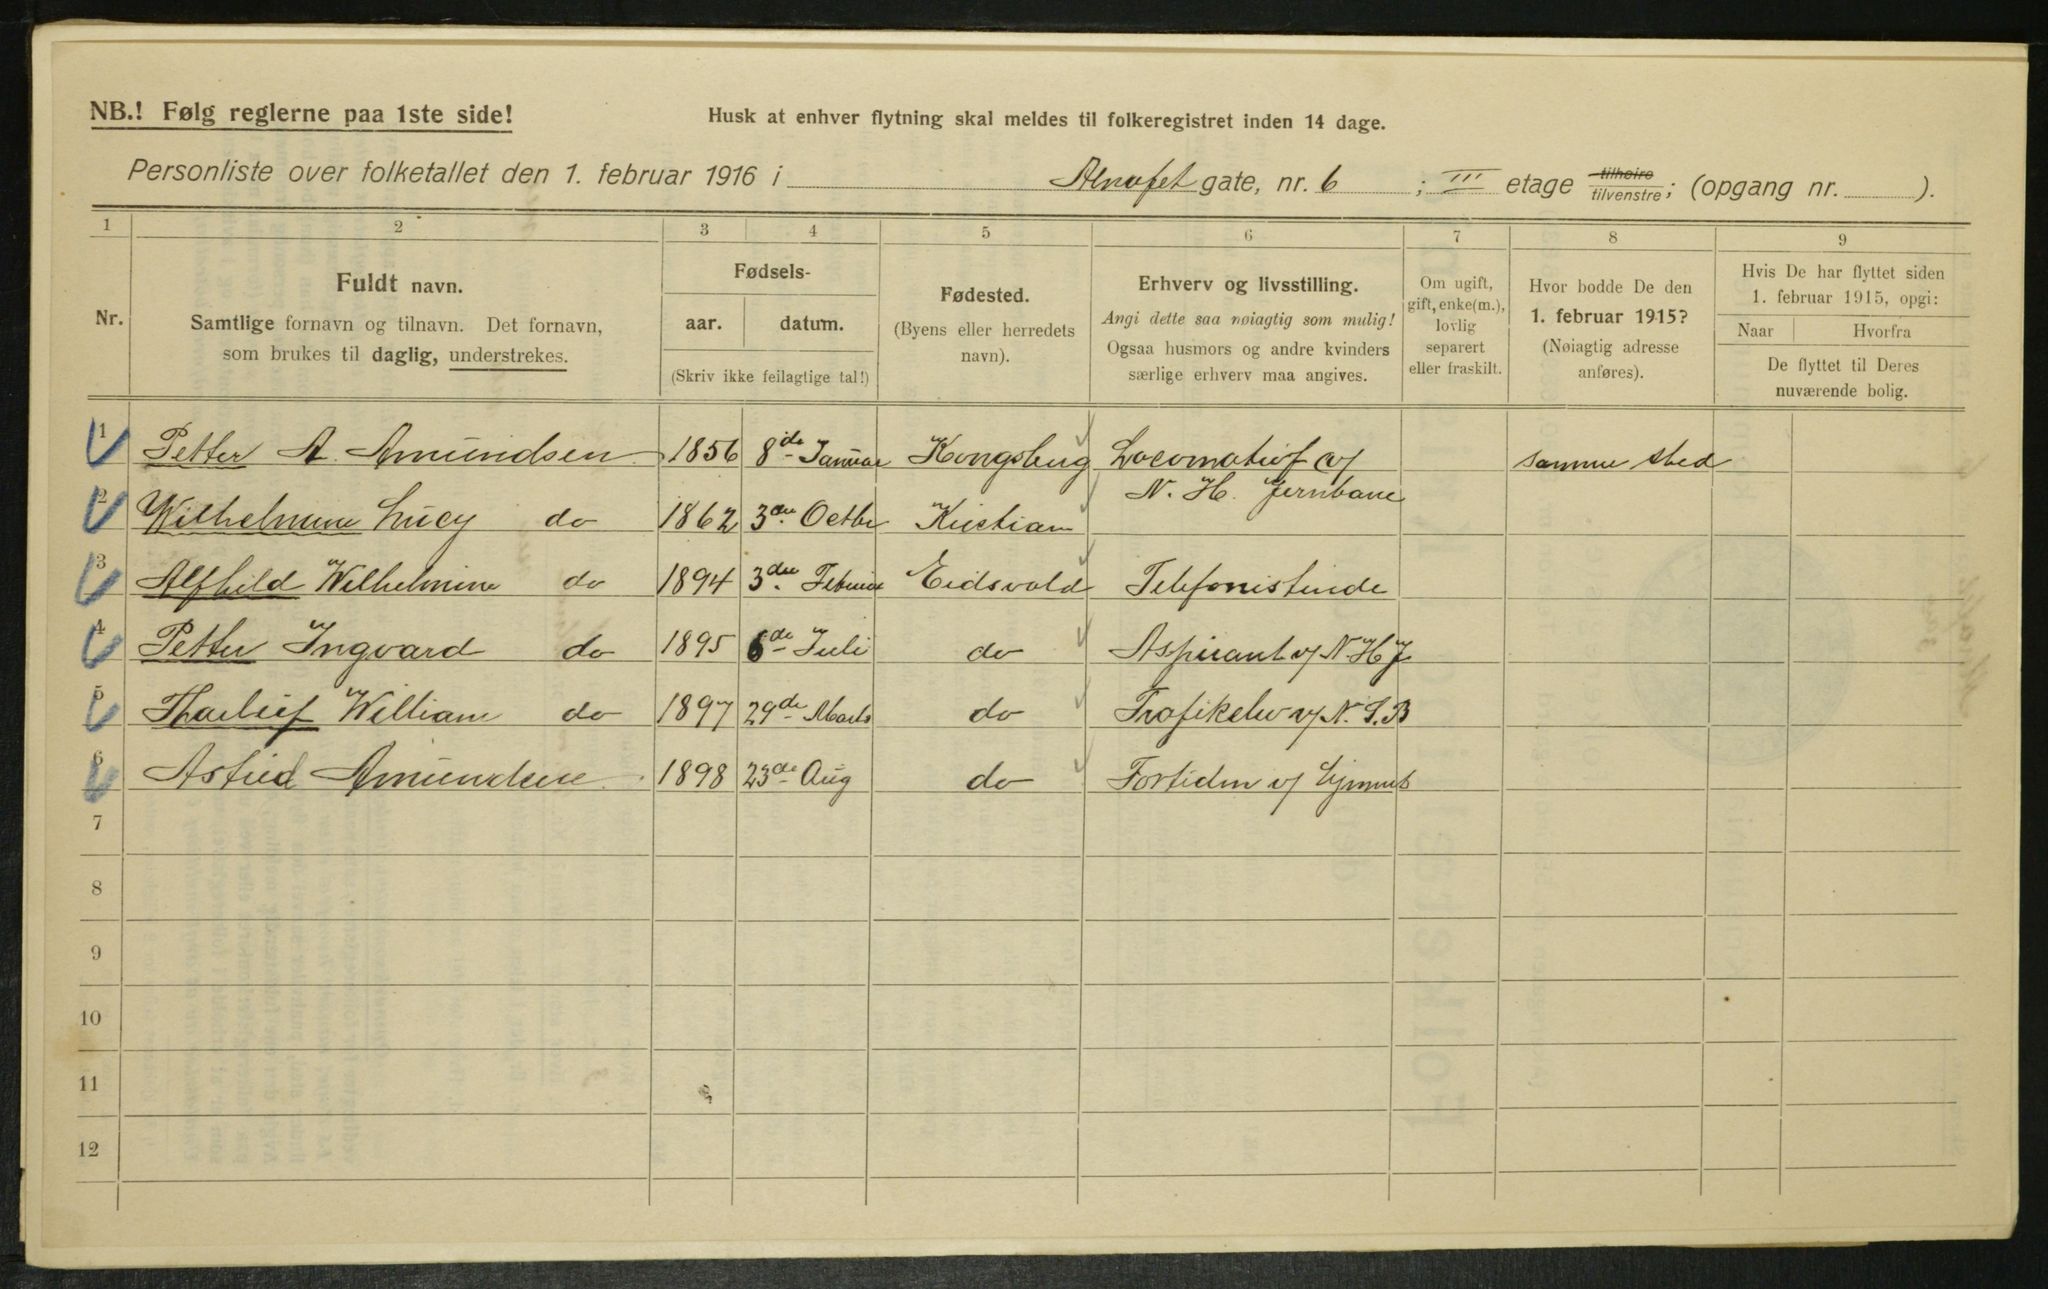 NB.! Følg reglerne paa 1ste side!
Husk at enhver flytning skal meldes til folkeregistret inden 14 dage.
Personliste over folketallet den 1. februar 1916 i Alnafet gate, nr. 6 ; III etage tilhøire tilvenstre; (opgang nr. ).
1 2 3 4 5 6 7 8 9
Nr.
Fuldt navn.
Samtlige fornavn og tilnavn. Det fornavn,
som brukes til daglig, understrekes.
Fødsels-
aar. datum.
(Skriv ikke feilagtige tal!)
Fødested.
(Byens eller herredets
navn).
Erhverv og livsstilling.
Angi dette saa nøiagtig som mulig!
Ogsaa husmors og andre kvinders
særlige erhverv maa angives.
Om ugift,
gift, enke(m.),
lovlig
separert
eller fraskilt.
Hvor bodde De den
1. februar 1915?
(Nøiagtig adresse
anføres).
Hvis De har flyttet siden
1. februar 1915, opgi:
Naar Hvorfra
De flyttet til Deres
nuværende bolig.
1 Petter A. Amundsen 1856 8de Januar Kongsberg Locomotivf v/ samme sted
N. H. Jernbane
2 Wilhelmine Lucy do 1862 3die Octbr Kristian
3 Alfhild Wilhelmine do 1894 3die Februar Eidsvold Telefonistinde
4 Petter Ingvard do 1895 6de Juli do Aspirant v/ N. H J
5 Tharleif William do 1897 29de Marts do Trafikelev v/ N. S. B
6 Astrid Amundsen 1898 23de Aug do v/
7
8
9
10
11
12